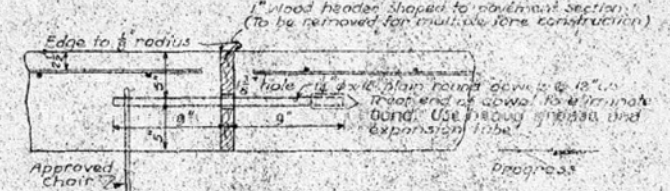 1" Wood header shaped to pavement section
(To be removed for multiple lane construction)
Edge to 1/8" radius
hole
plain round dowels @ 12"
Treat end of dowel to eliminate
bond. Use heavy grease and
expansion tube
2½"
5"
5"
9"
9"
Approved
Chair
Progress